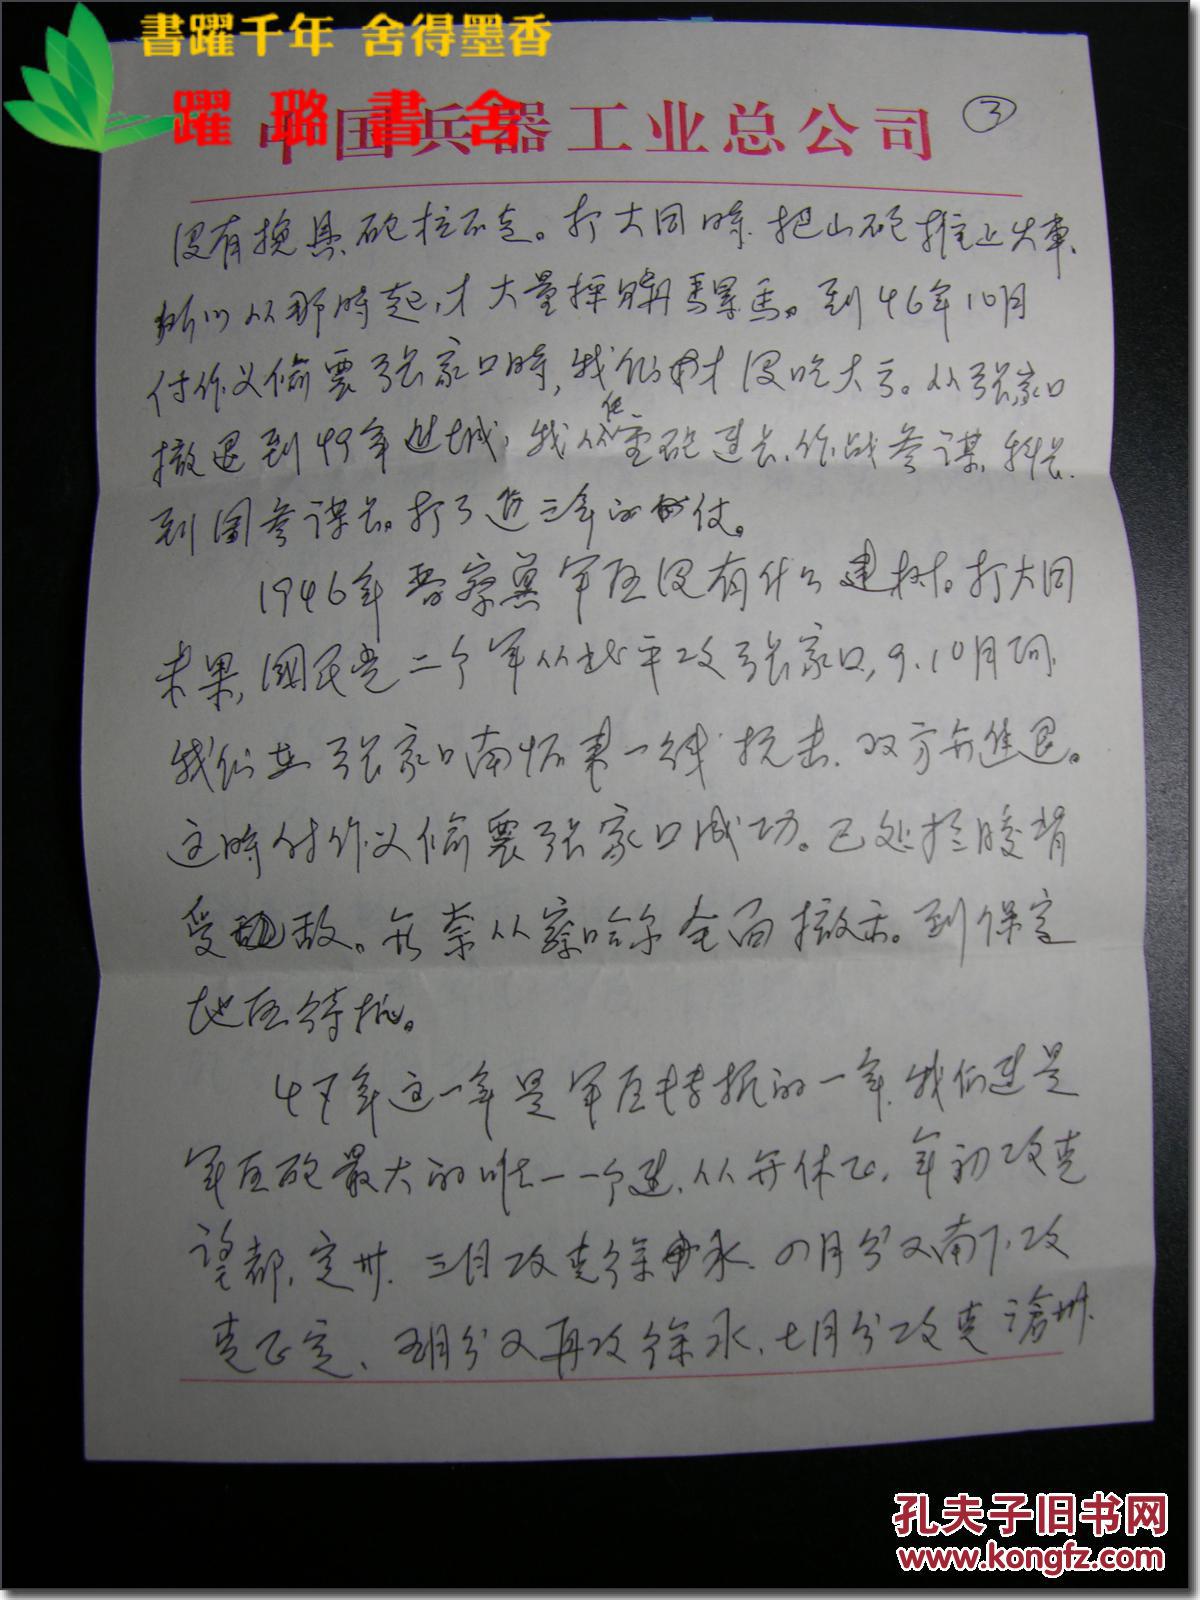 書躍千年 舍得墨香
躍 璐 書 舍
中国兵器工业总公司 ③
没有挽具 砲拉不走。打大同時 把山砲推上火車、
所以从那時起,才大量採購骡馬。到46年10月
付作义偷袭张家口時,我们才没吃大亏。从张家口
撤退到49年进城,我从任重砲连长、作战参谋、科长、
到团参谋长。打了近三年的仗。
1946年晋察冀军区没有什么建树。打大同
未果,國民党二个军从北平攻张家口,9、10月间
我们在张家口南怀来一线抗击、双方无进退。
这時付作义偷袭张家口成功。已处於腹背
受敌。无奈从察哈尔全面撤出。到保定
地区待机。
47年这一年是军区转折的一年、我们连是
军区砲最大的唯一一个连、从无休止,年初攻克
望都、定州、三月攻克徐水、四月分又南下、攻
克正定、五月分又再攻徐水、七月分攻克滄州、
孔夫子旧书网
www.kongfz.com